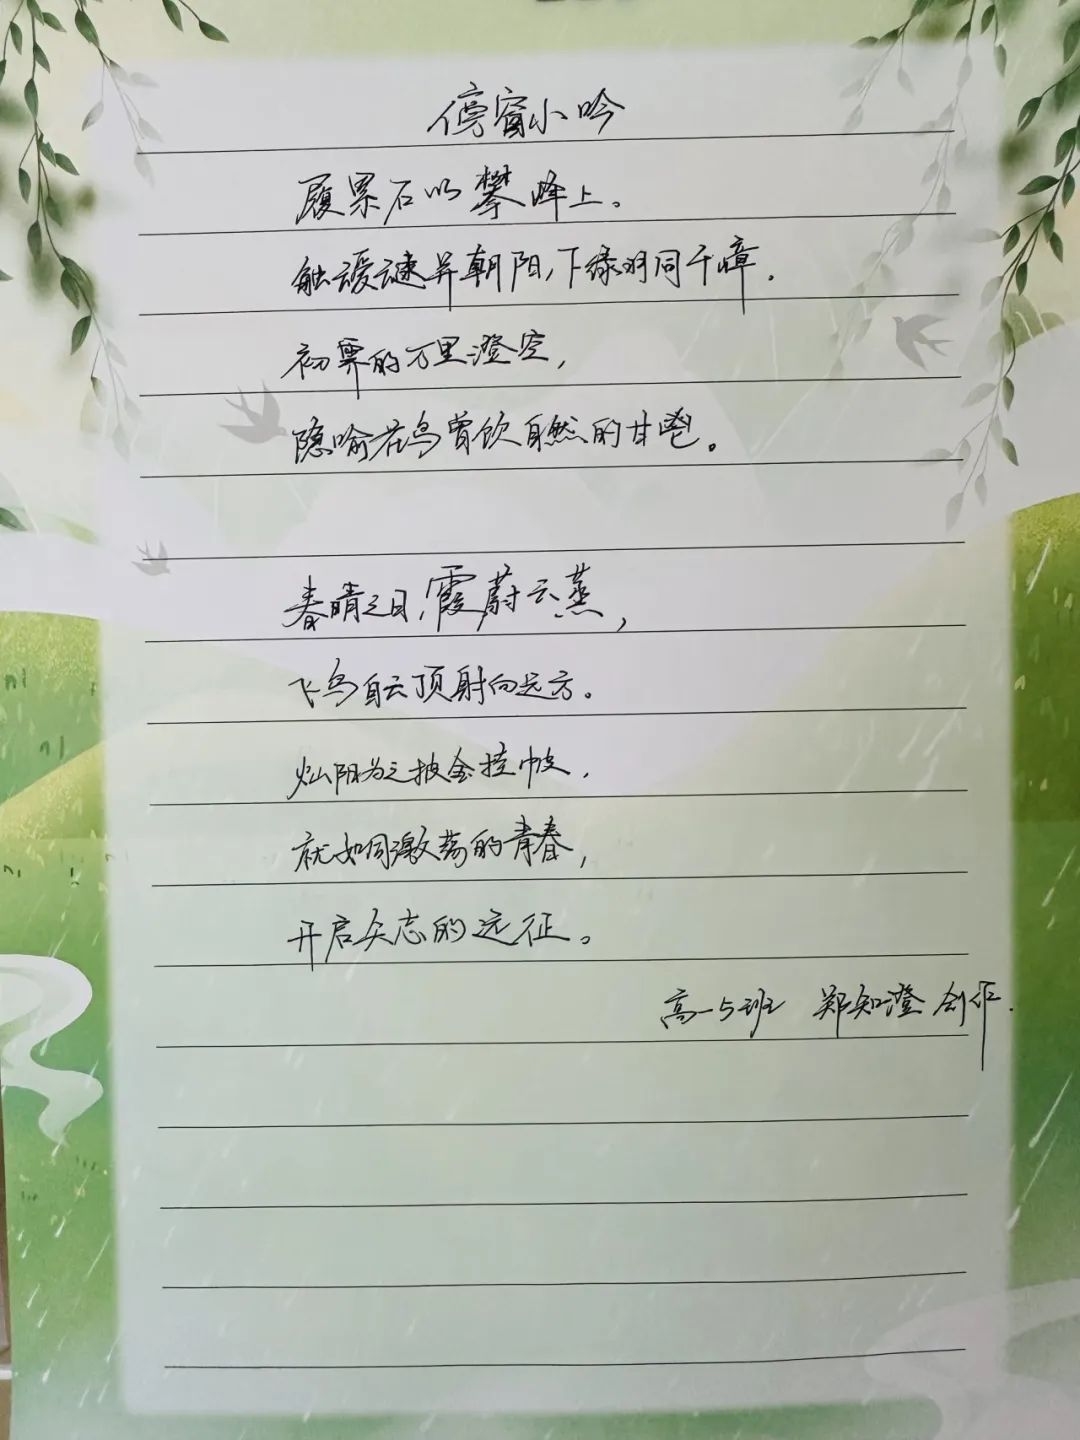 傍窗小吟
履累石以攀峰上。
触谡谜并朝阳,下绿羽同千嶂.
初霁的万里澄空,
隐喻花鸟曾饮自然的甘鬯。
春晴之日,霞蔚云蒸,
飞鸟自云顶射向远方。
灿阳为之披金挂帔,
就如同激荡的青春,
开启矢志的远征。
高一5班 郑知澄 创作.